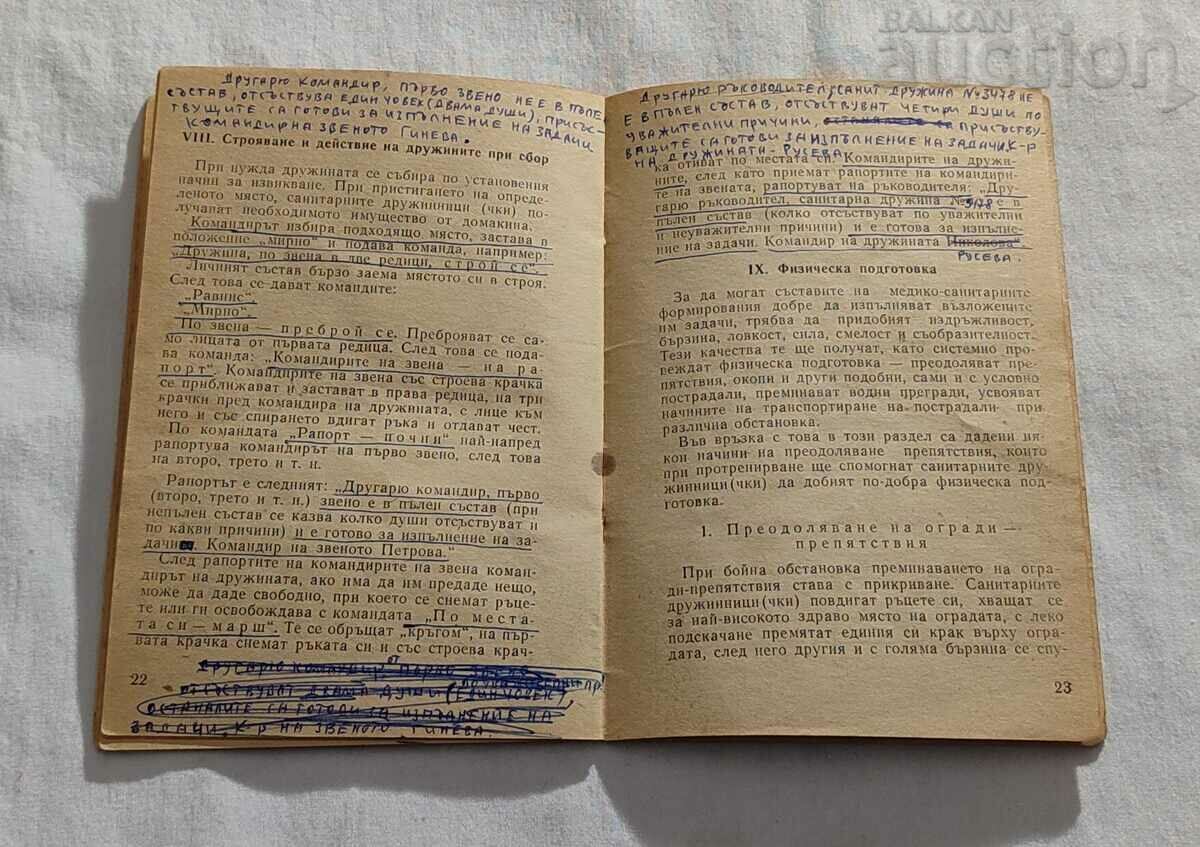 BALKAN
auction
Другарю командир, първо звено не е в пълен
състав, отсъствува един човек (двама души), присъс-
твущите са готови за изпълнение на задачи
командир на звеното Гинева.
VIII. Строяване и действие на дружините при сбор
При нужда дружината се събира по установения
начин за извикване. При пристигането на опреде-
леното място, санитарните дружинници (чки) по-
лучават необходимото имущество от домакина.
Командирът избира подходящо място, застава в
положение „мирно“ и подава команда, например:
„Дружина, по звена в две редици, строй се“.
Личният състав бързо заема мястото си в строя.
След това се дават командите:
„Равнис“.
„Мирно“.
По звена — преброй се. Преброяват се са-
мо лицата от първата редица. След това се пода-
ва команда: „Командирите на звена — на ра-
порт“. Командирите на звена със строева крачка
се приближават и застават в права редица, на три
крачки пред командира на дружината, с лице към
него и със спирането вдигат ръка и отдават чест.
По командата „Рапорт — почни“ най-напред
рапортува командирът на първо звено, след това
на второ, трето и т. н.
Рапортът е следният: „Другарю командир, първо
(второ, трето и т. н.) звено е в пълен състав (при
непълен състав се казва колко души отсъствуват и
по какви причини) и е готово за изпълнение на за-
дачи. Командир на звеното Петрова.“
След рапортите на командирите на звена коман-
дирът на дружината, ако има да им предаде нещо,
може да даде свободно, при което се снемат ръце-
те или ги освобождава с командата „По места-
та си — марш“. Те се обръщат „кръгом“, на пър-
вата крачка снемат ръката си и със строева крач-
22
Другарю командир, от
отсъствуват двама души (един човек),
останалите са готови за изпълнение на
задачи, к-р на звеното Гинева.
Другарю ръководител, санит. дружина №3478 не
е в пълен състав, отсъствуват четири души по
уважителни причини, присъству-
ващите са готови за изпълнение на задачи, к-р
на дружината - Русева
ка отиват по местата си. Командирите на дружи-
ните, след като приемат рапортите на командири-
те на звената, рапортуват на ръководителя: „Дру-
гарю ръководител, санитарна дружина № 3478 е в
пълен състав (колко отсъствуват по уважителни
и неуважителни причини) и е готова за изпълне-
ние на задачи. Командир на дружината Николова“.
Русева.
IX. Физическа подготовка
За да могат съставите на медико-санитарните
формирования добре да изпълняват възложените
им задачи, трябва да придобият издръжливост,
бързина, ловкост, сила, смелост и съобразителност.
Тези качества те ще получат, като системно про-
веждат физическа подготовка — преодоляват пре-
пятствия, окопи и други подобни, сами и с условно
пострадали, преминават водни прегради, усвояват
начините на транспортиране на пострадали при
различна обстановка.
Във връзка с това в този раздел са дадени ня-
кои начини на преодоляване препятствия, които
при протренирване ще спомогнат санитарните дру-
жинници(чки) да добият по-добра физическа под-
готовка.
1. Преодоляване на огради —
препятствия
При бойна обстановка преминаването на огра-
ди-препятствия става с прикриване. Санитарните
дружинници(чки) повдигат ръцете си, хващат се
за най-високото здраво място на оградата, с леко
подскачане премятат единия си крак върху огра-
дата, след него другия и с голяма бързина се спу-
23